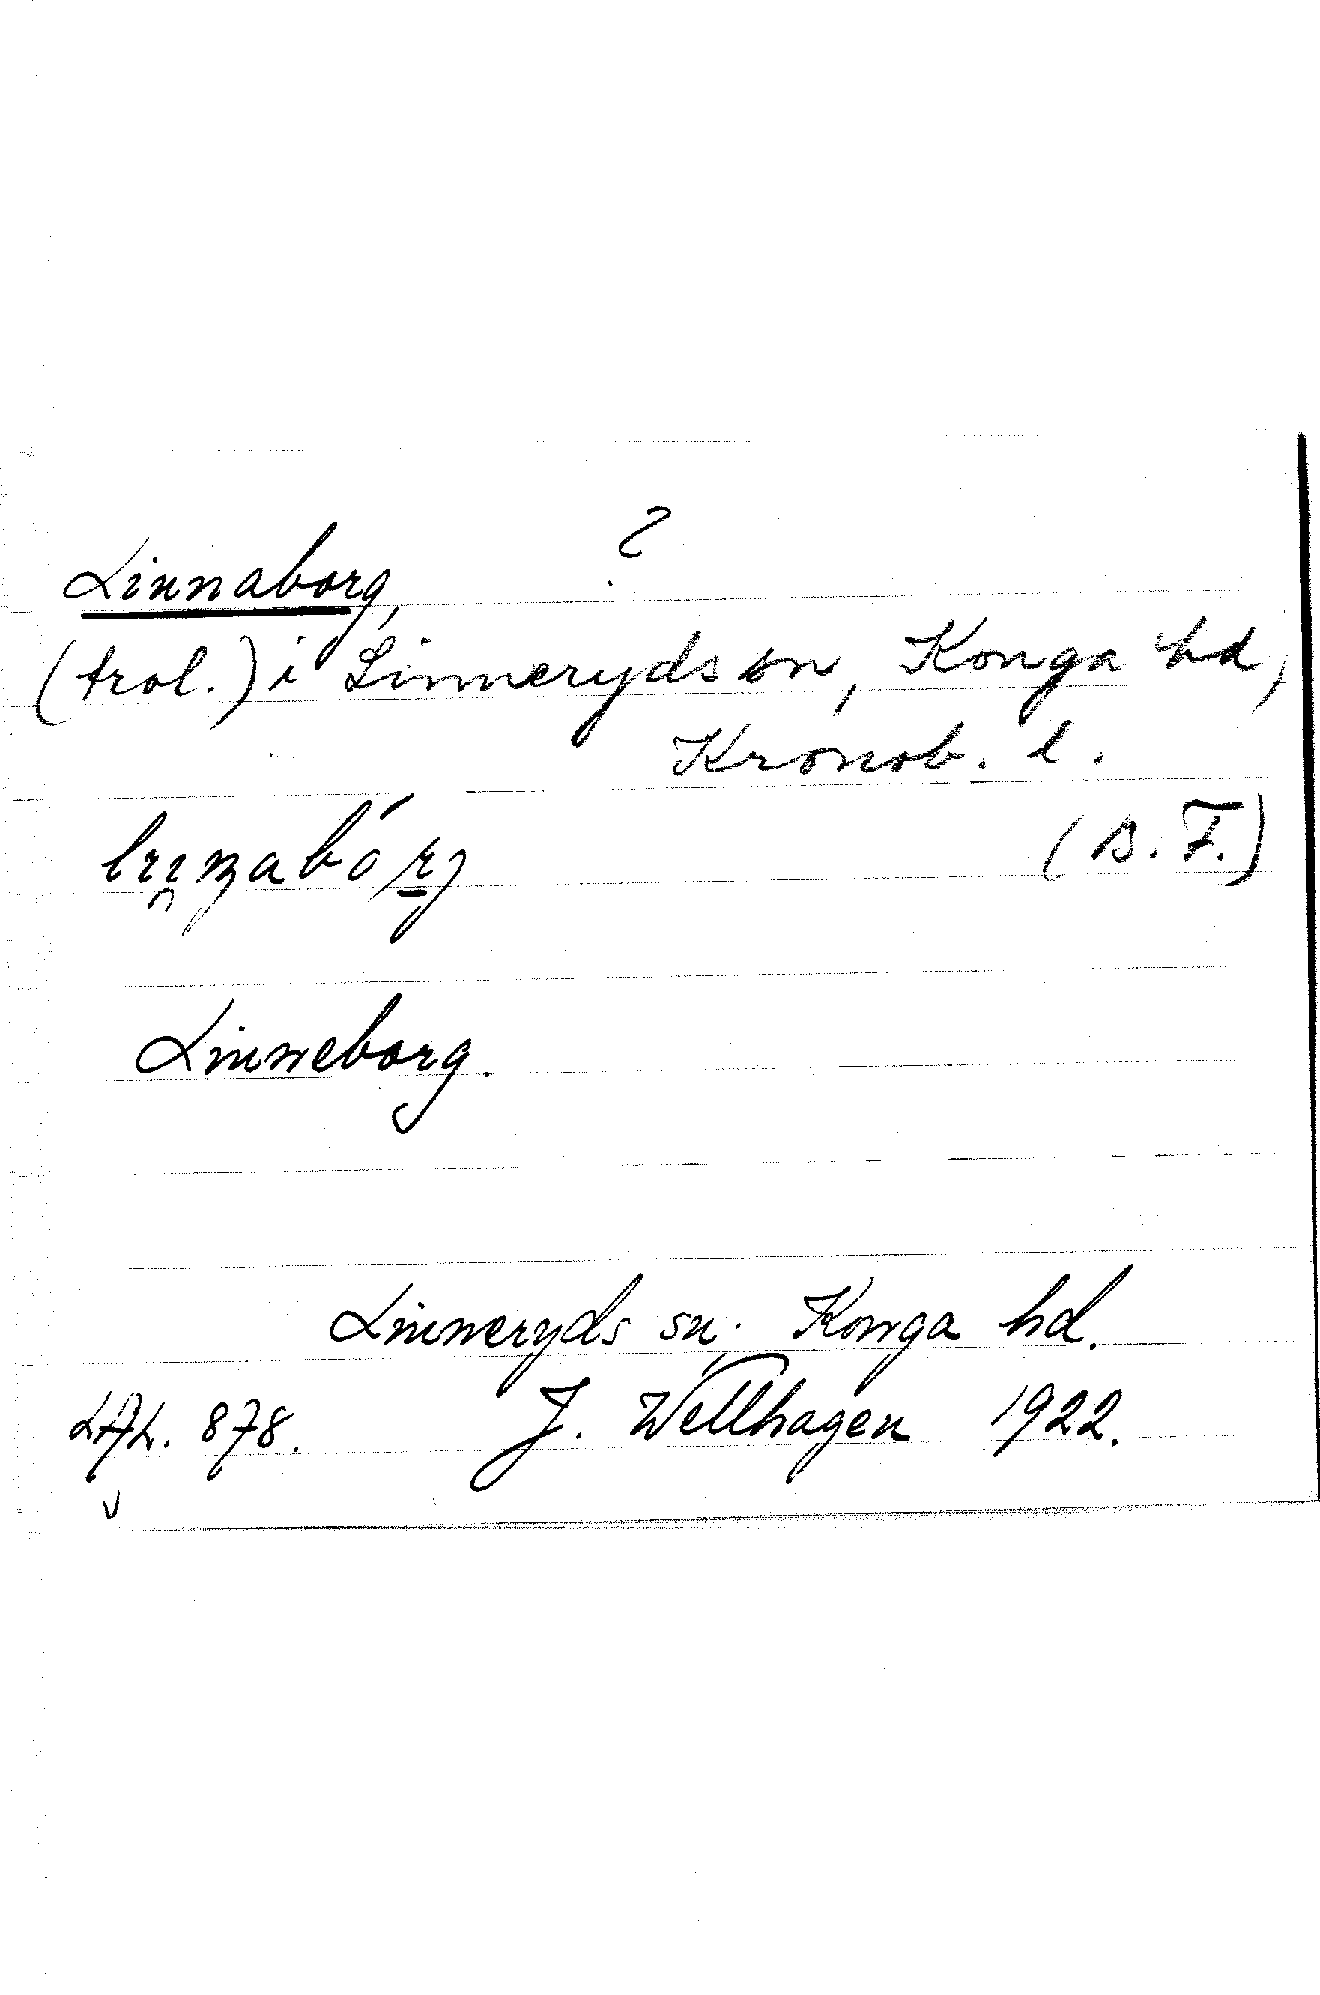 Linnaborg, ?
(trol.) i Linneryds sn, Konga hd,
Kronob. l.
(S. F.)
Linneborg.
Linneryds sn. Konga hd.
J. Wellhagen 1922.
878.